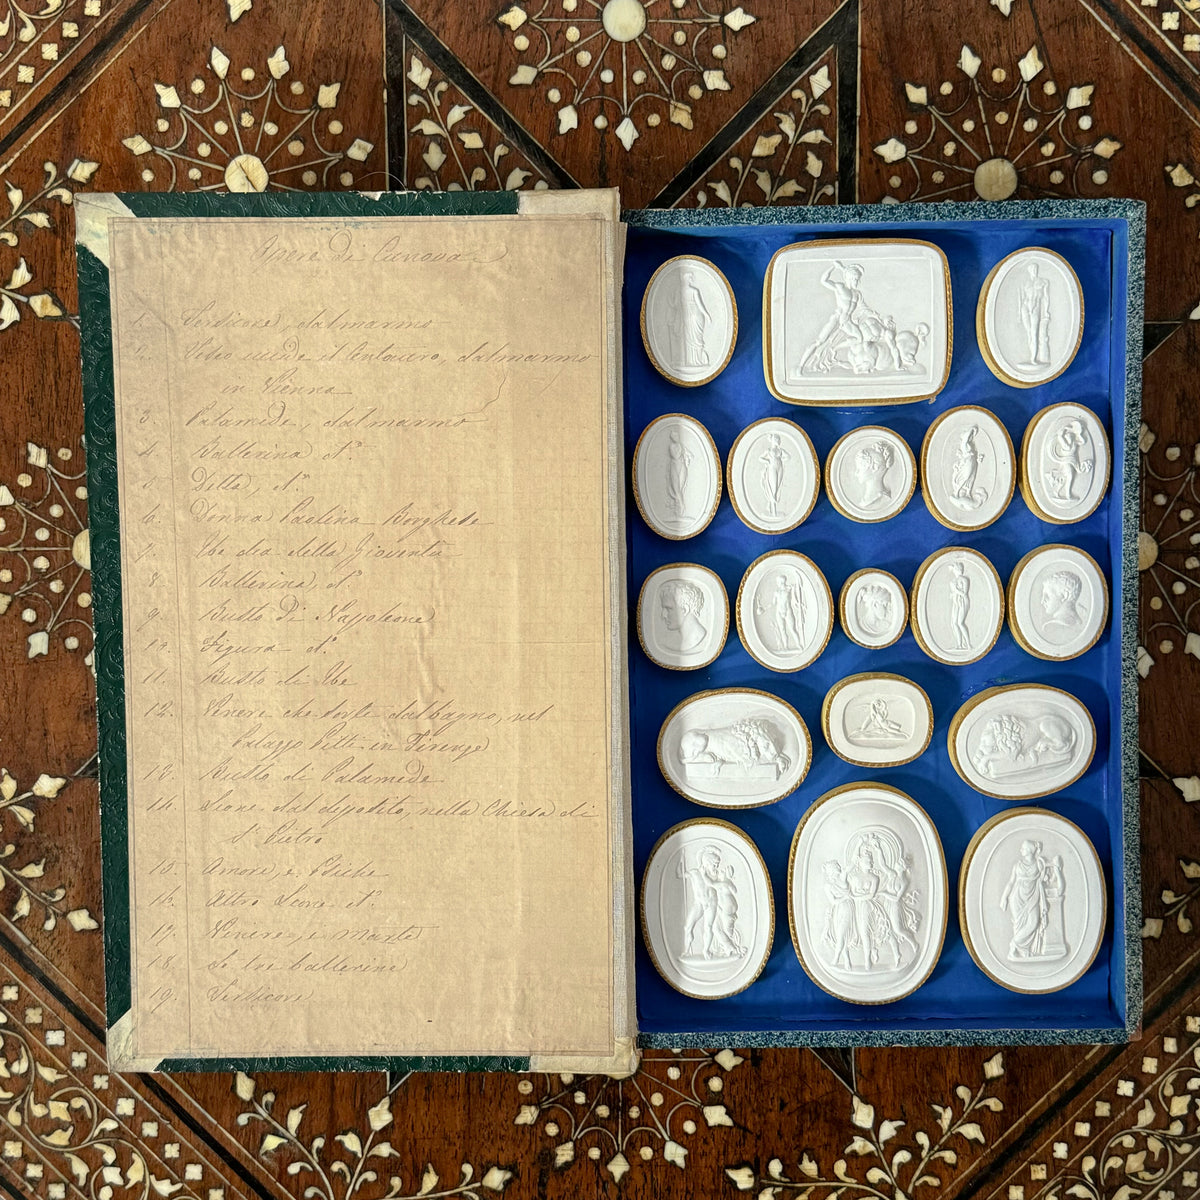 Opere Di Canova
1. Tersicore, dal marmo
2. Teseo uccide il Centauro, dal marmo
in Vienna
3. Palamede, dal marmo
4. Ballerina d.°
5. Detta, d.°
6. Donna Paolina Borghese
7. Ebe dea della Gioventù
8. Ballerina d.°
9. Busto di Nappoleone
10. Figura d.°
11. Busto di Ebe
12. Venere che sorte dal bagno, nel
Palazzo Pitti in Firenze
13. Busto di Palamede
14. Leone dal deposito, nella Chiesa di
S. Pietro
15. Amore, e Psiche
16. Altro Leone d.°
17. Venere, e Marte
18. Le tre ballerine
19. Tersicore